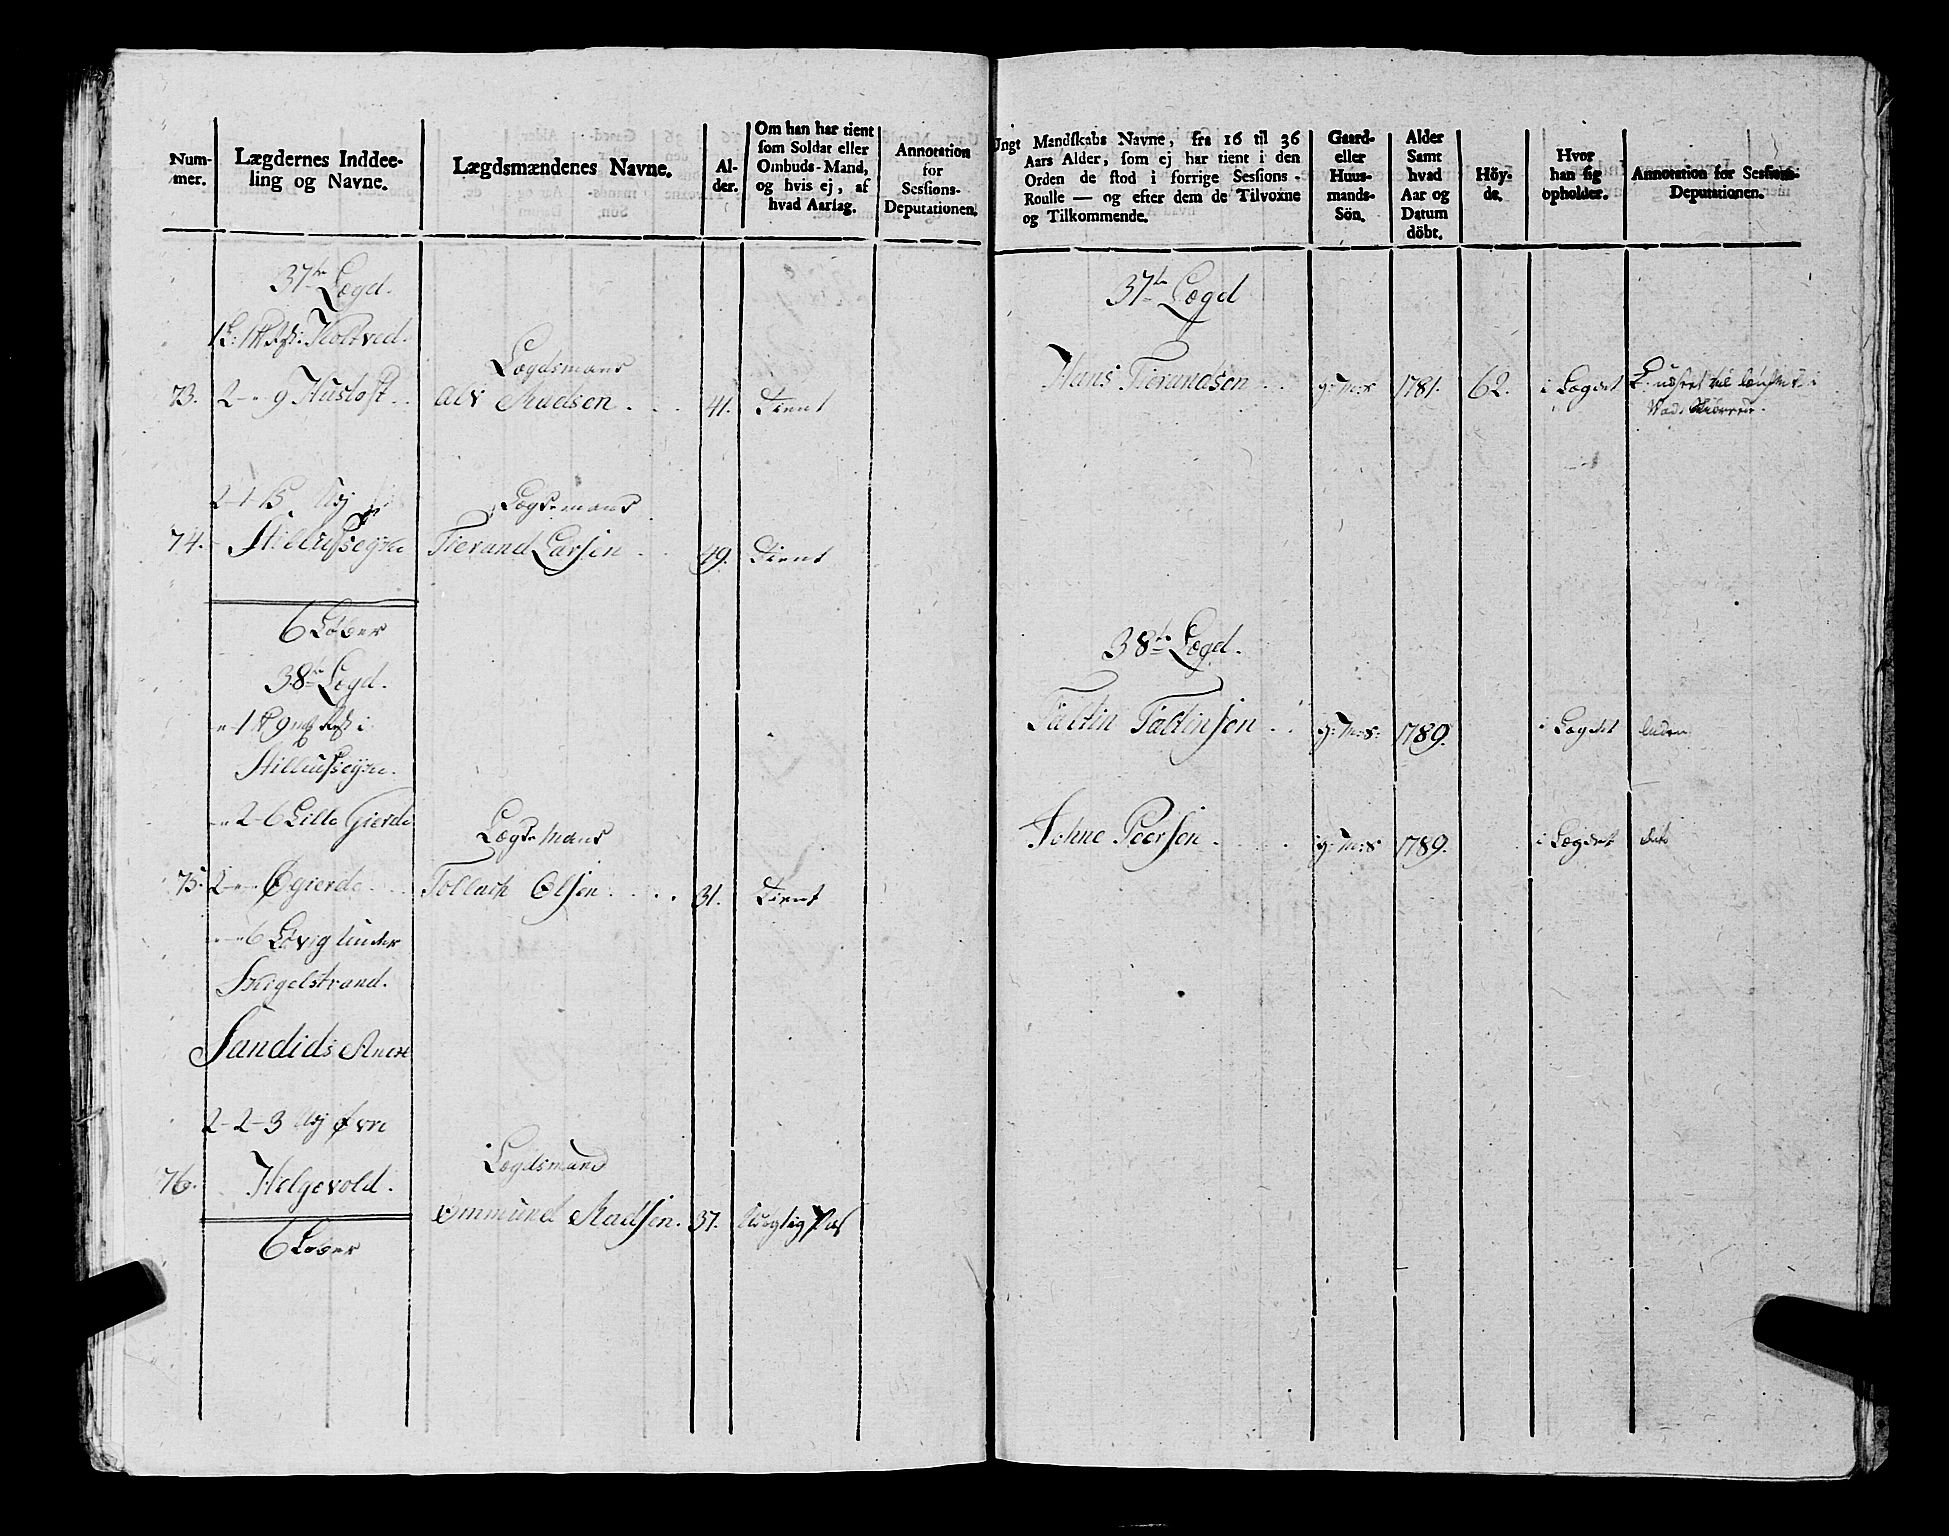 Num-
mer.
Lægdernes Inddee-
ling og Navne.
Lægdsmændenes Navne.
Al-
der.
Om han har tient
som Soldat eller
Ombuds-Mand,
og hvis ej, af
hvad Aarsag.
Annotation
for
Sessions-
Deputationen.
37te Lægd.
73. 2 - " 9 Hustoft
Lægdsmand
Alv Madsen . . . 41. Tient
Lægdsmand
74.
Tierand Larsen . . 49. Tient
6 Løber
38te Lægd.
" 2-6 Lille Gierde
Lægdsmand
75. 2 - " - " Øgierde . . . Tollach Olsen . . . . 31. Tient
" - " 6 Løvig under
Higelstrand.
Sandids Anexe
2-2-3 Øvre
76. Helgevold.
Lægdsmand
Ommund Madsen. 37.
6 Løber
Ungt Mandskabs Navne, fra 16 til 36
Aars Alder, som ej har tient i den
Orden de stod i forrige Sessions-
Roulle — og efter dem de Tilvoxne
og Tilkommende.
Gaard-
eller
Huus-
mands-
Sön.
Alder
Samt
hvad
Aar og
Datum
döbt.
Höy-
de.
Hvor
han sig
opholder.
Annotation for Sessions-
Deputationen.
37te Lægd
Hans Tierandsen . . g: m: s 1781. 62. i Lægdet
38te Lægd.
Faltin Faltinsen . . g: m: s: 1789. i Lægdet liden
Johne Peersen . . . . g: m: s 1789. i Lægdet dito